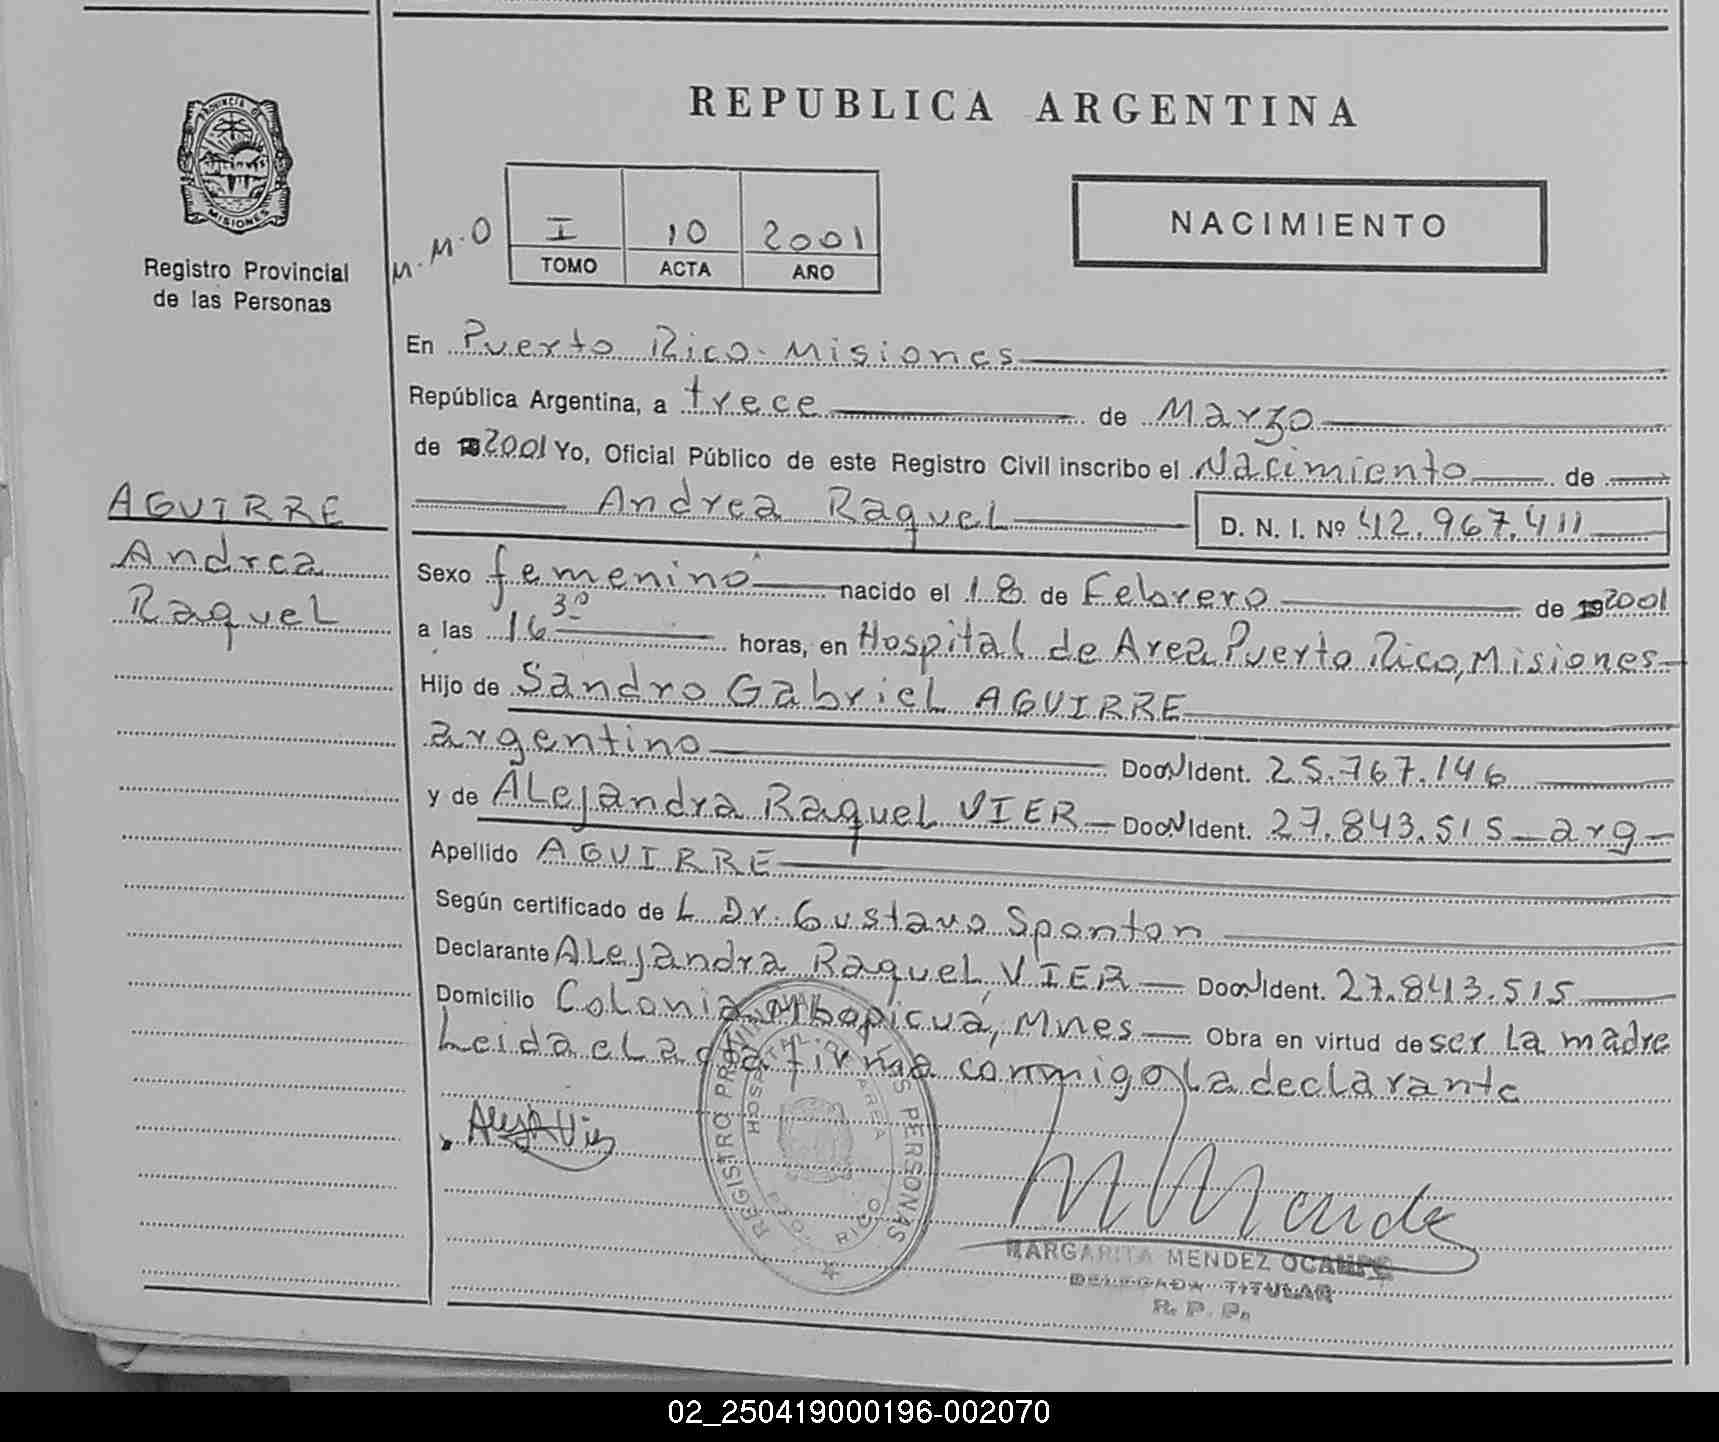 REPUBLICA ARGENTINA
PROVINCIA DE
MISIONES
Registro Provincial
de las Personas
M.M.O
I 10 2001
TOMO ACTA AÑO
NACIMIENTO
En Puerto Rico - Misiones
República Argentina, a trece de Marzo
de 2001 Yo, Oficial Público de este Registro Civil inscribo el Nacimiento de
Andrea Raquel D. N. I. Nº 42.967.411
AGUIRRE
Andrea
Raquel
Sexo femenino nacido el 18 de Febrero de 2001
a las 16 30 horas, en Hospital de Area Puerto Rico, Misiones
Hijo de Sandro Gabriel AGUIRRE
argentino Doc N Ident. 25.767.146
y de ALejandra Raquel VIER Doc N Ident. 27.843.515 arg
Apellido AGUIRRE
Según certificado de L Dr. Gustavo Sponton
Declarante ALejandra Raquel VIER Doc N Ident. 27.843.515
Domicilio Colonia Mbopicuá, Mnes Obra en virtud de ser La madre
Leida el acta firma conmigo La declarante
REGISTRO PROVINCIAL DE LAS PERSONAS
HOSPITAL DE AREA
PTO. RICO
MARGARITA MENDEZ OCAMPO
DELEGADA TITULAR
R. P. P.
02_250419000196-002070